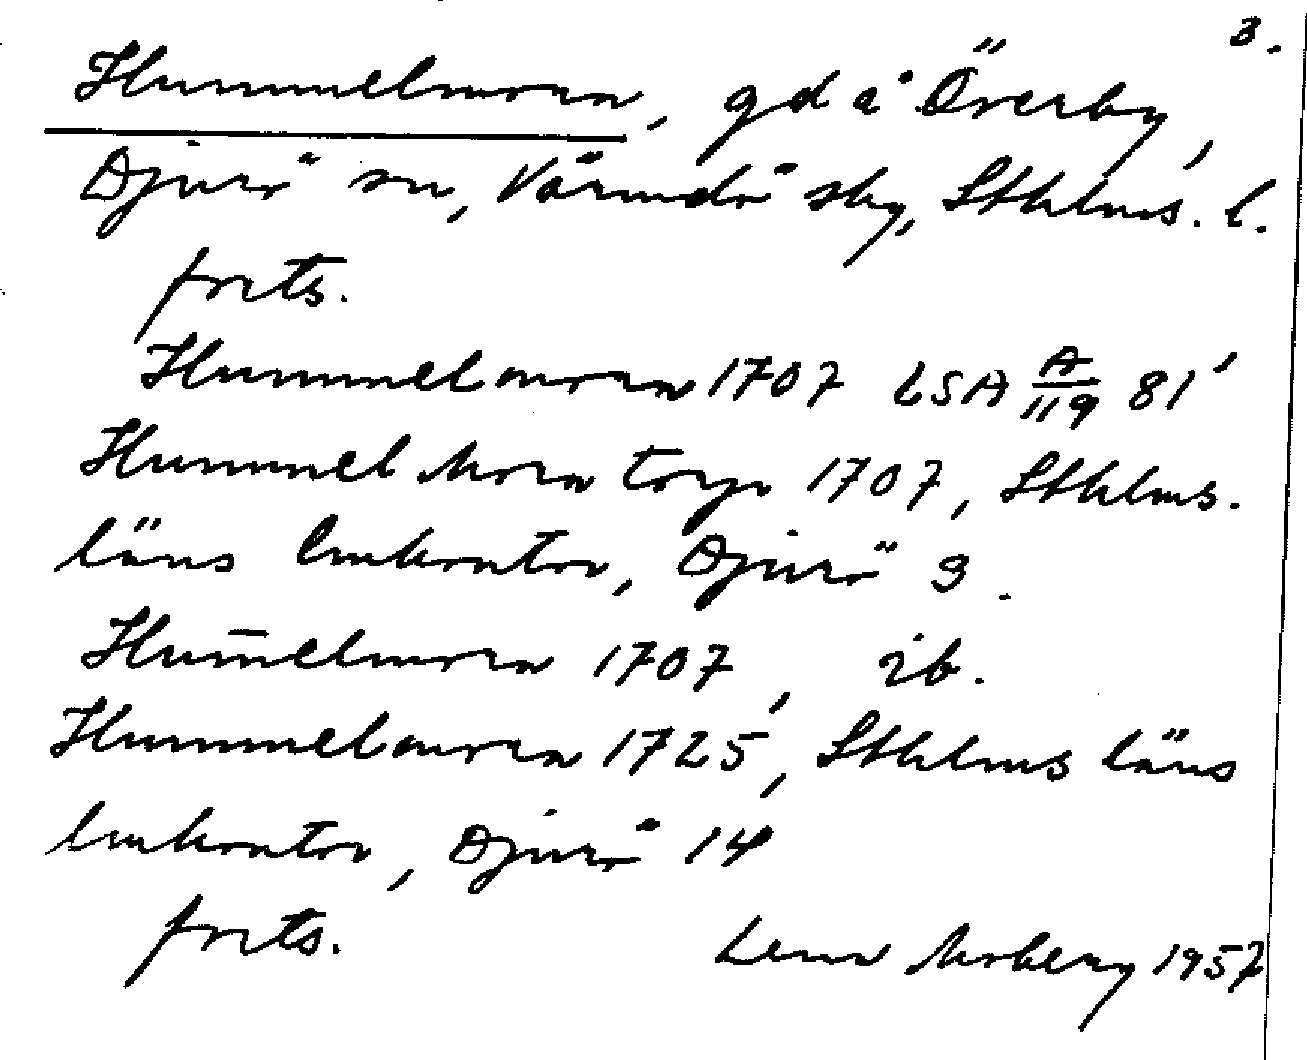 3.
Hummelmoran, gd å Överby,
Djurö sn, Värmdö skg, Sthlms. l.
forts.
Hummelmoran 1707 LSA A/119 81'
Hummel Mora torp 1707, Sthlms.
läns lmkontor, Djurö 9.
Hum̅elmora 1707, ib.
Hummelmoran 1725, Sthlms läns
lmkontor, Djurö 14
forts.
Lena Moberg 1957